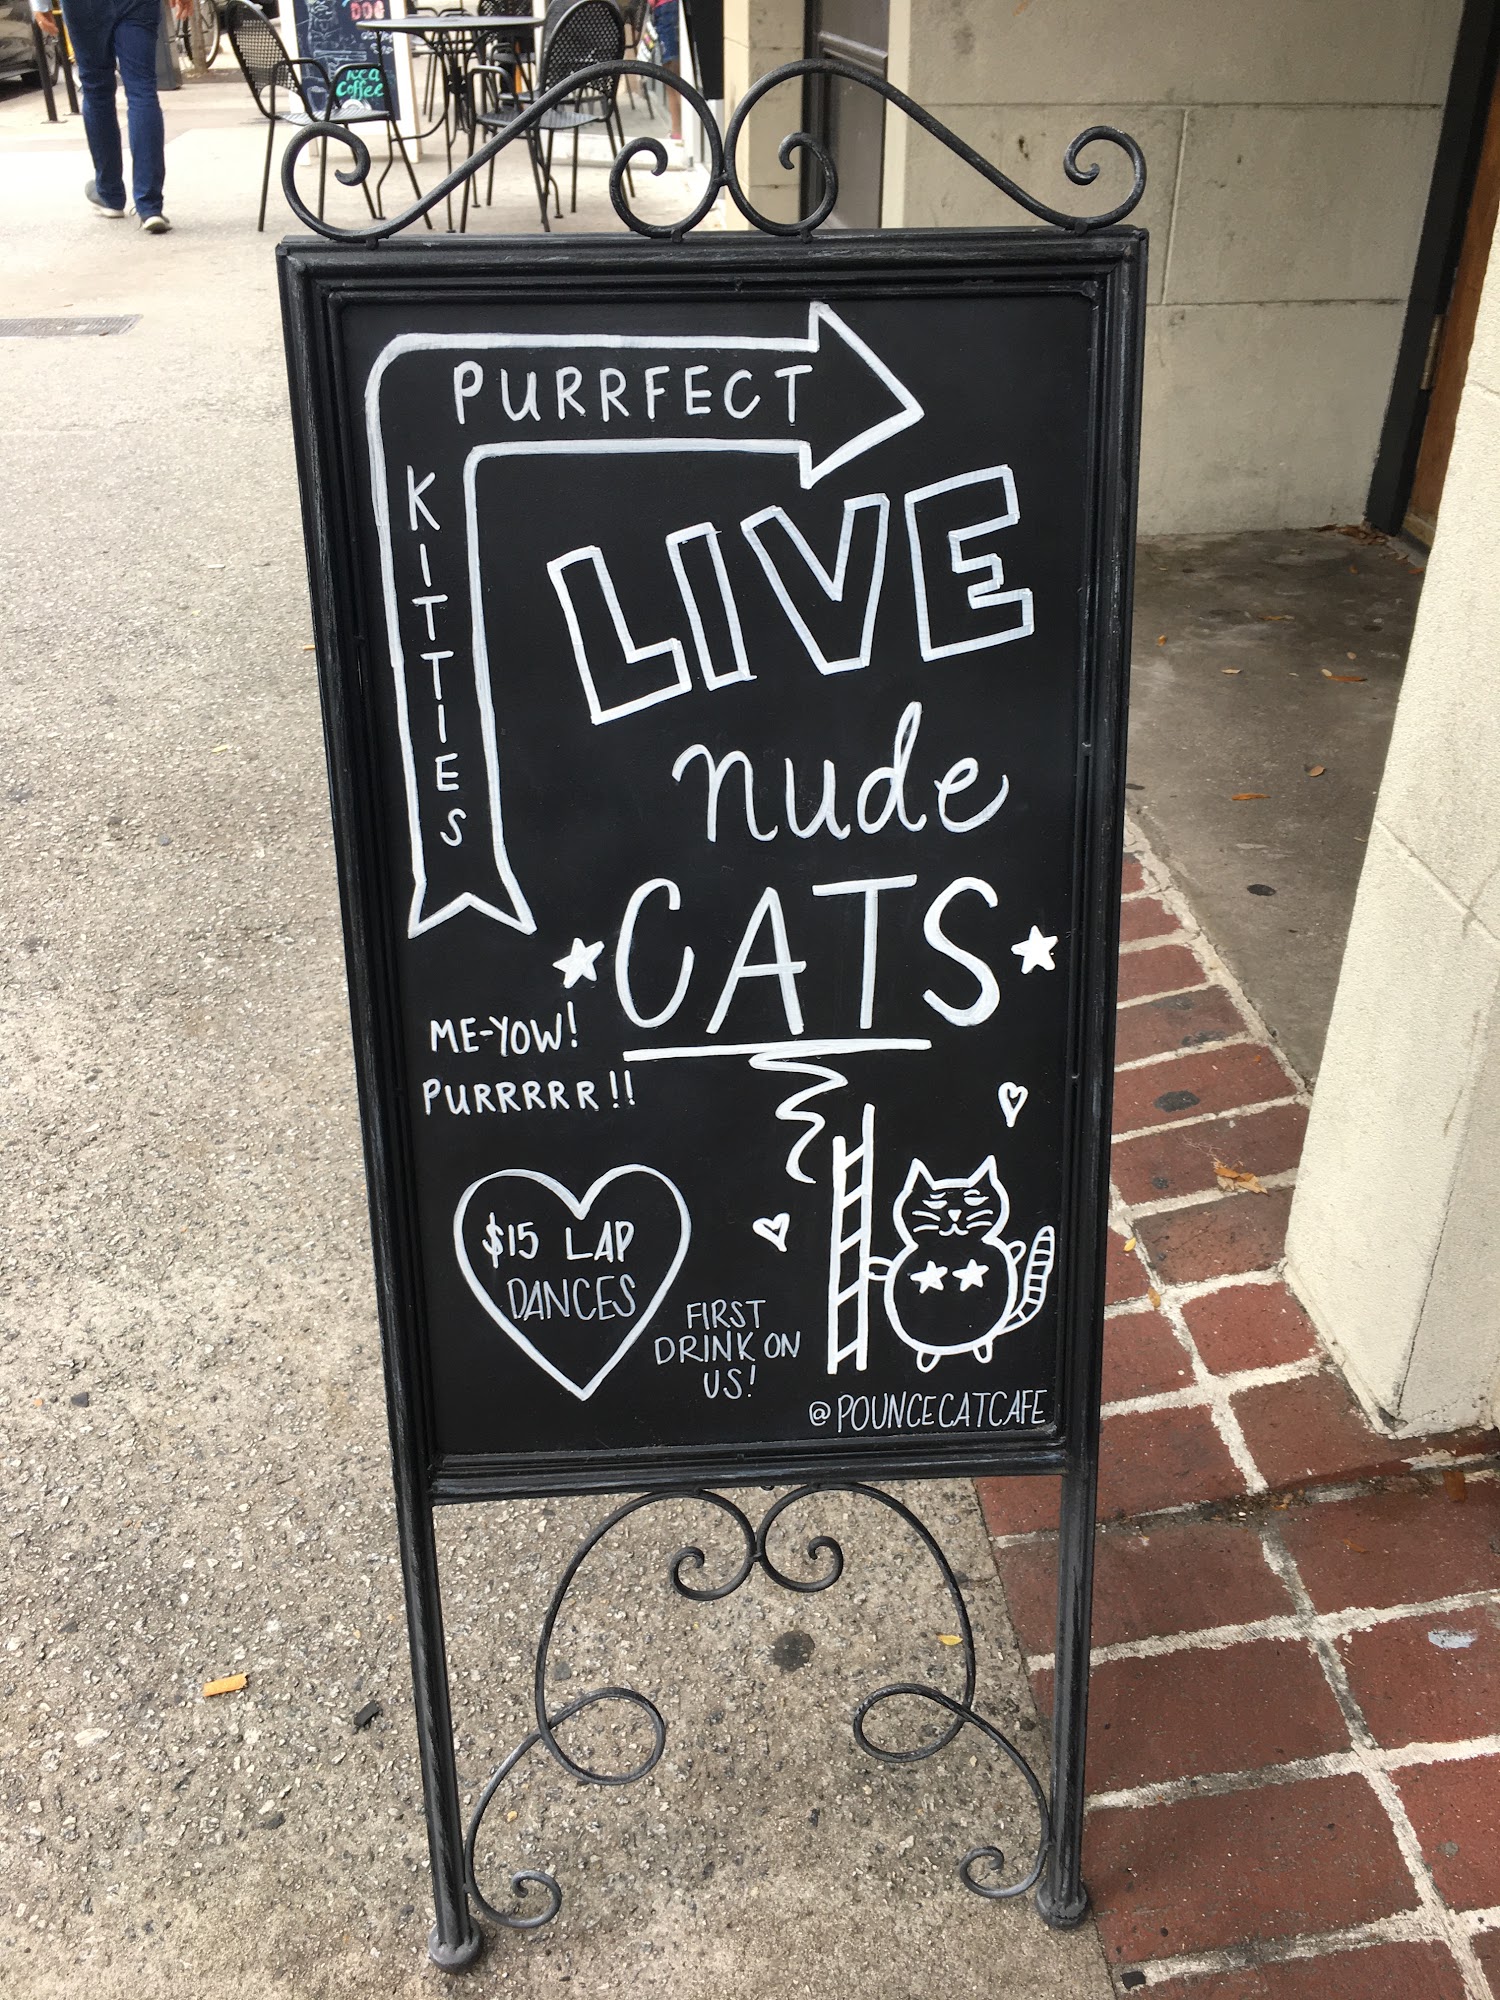 DOG
Coffee
PURRFECT
KITTIES
LIVE
nude
CATS
ME-YOW!
PURRRRR!!
$15 LAP
DANCES
FIRST
DRINK ON
US!
@POUNCECATCAFE